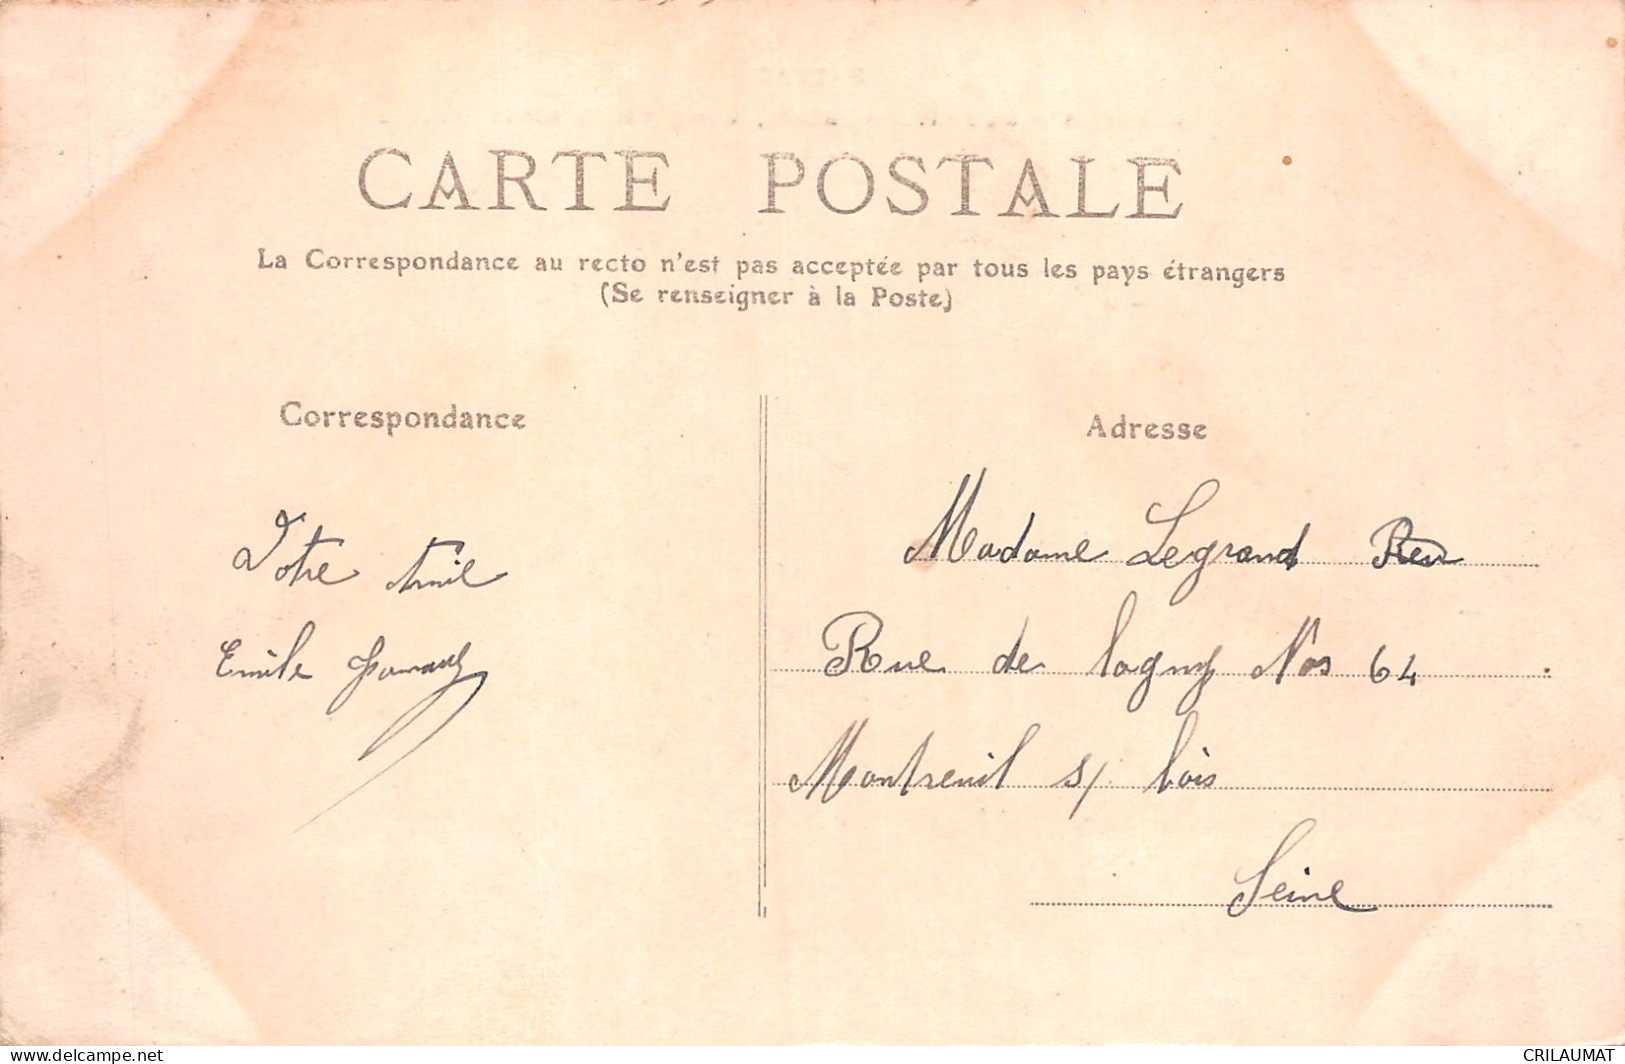 CARTE POSTALE
La Correspondance au recto n'est pas acceptée par tous les pays étrangers
(Se renseigner à la Poste)
Correspondance
Adresse
Votre Amie
Emile
Madame Legrand
Rue de Lagny Nos 64
Montreuil s/ bois
Seine
delcampe.net
CRILAUMAT